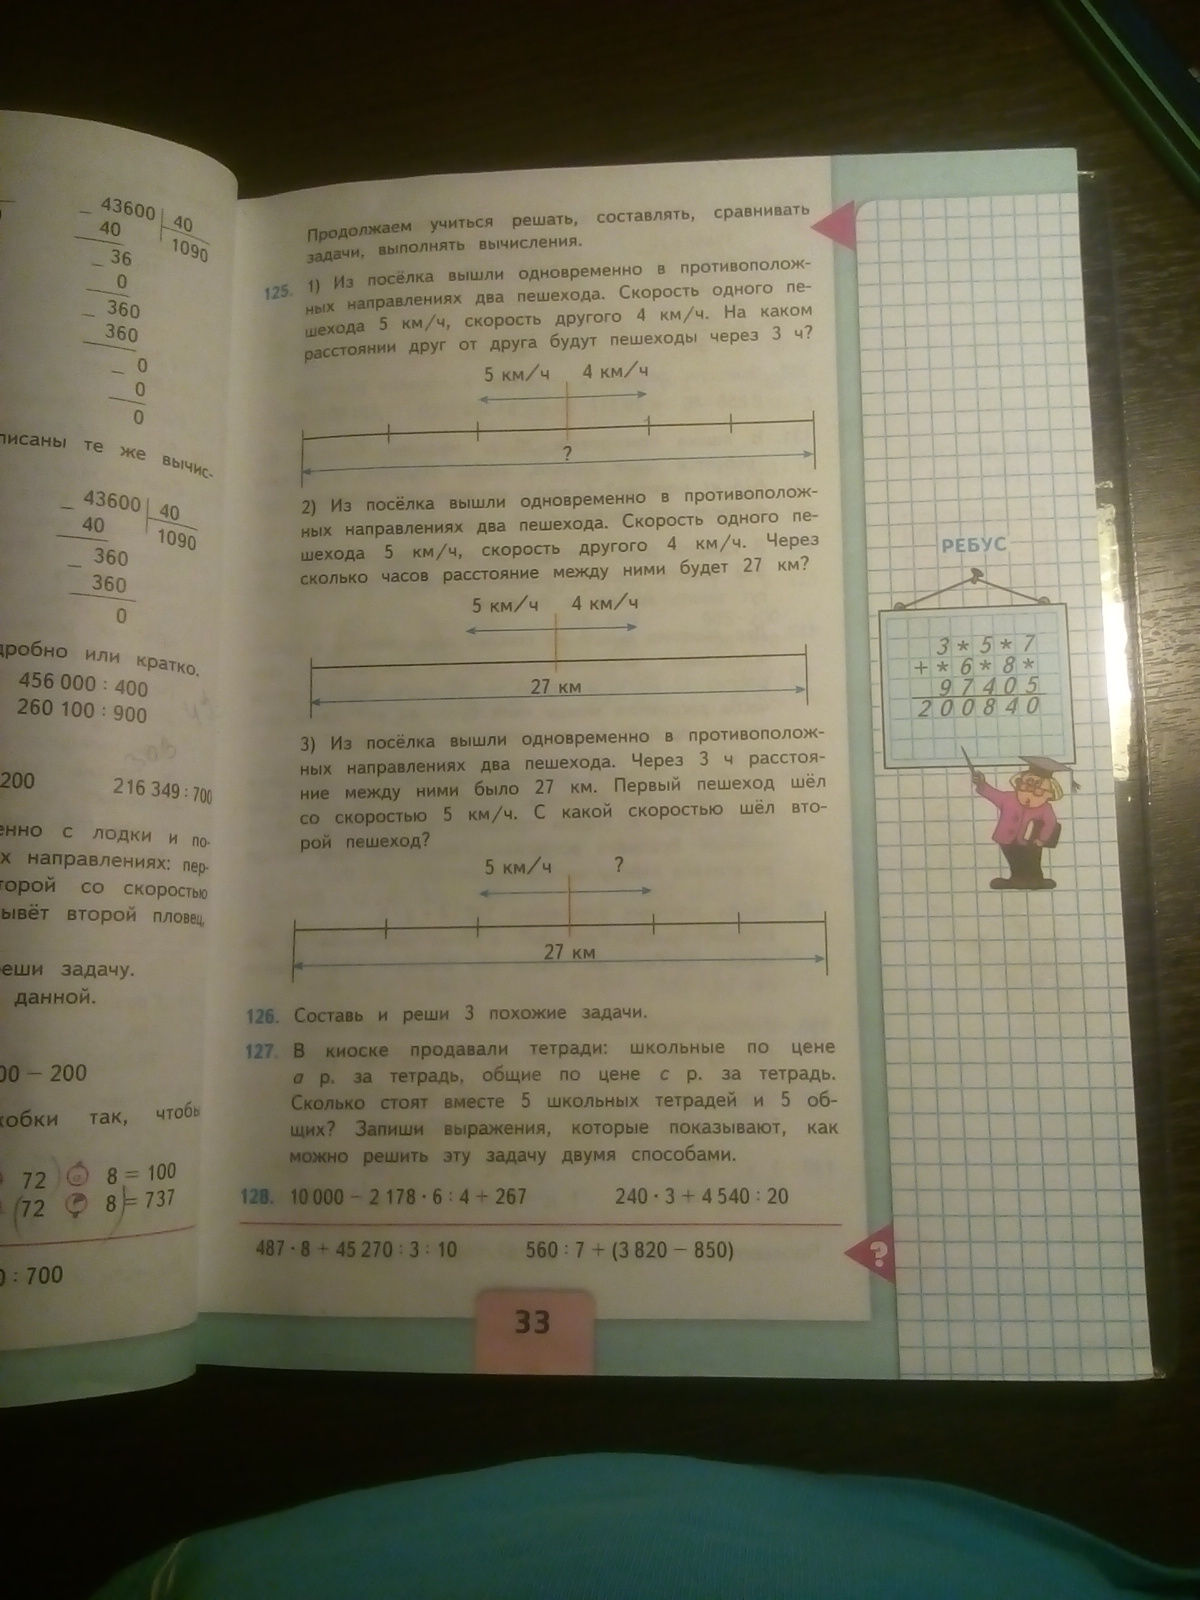 43600 40
40 1090
36
0
360
360
0
0
0
писаны те же вычис-
43600 40
40 1090
360
360
0
дробно или кратко.
456 000 : 400
260 100 : 900
200 216 349 : 700
енно с лодки и по-
х направлениях: пер-
торой со скоростью
ывёт второй пловец,
еши задачу.
данной.
00 − 200
кобки так, чтобы
72 8 = 100
(72 8) = 737
0 : 700
Продолжаем учиться решать, составлять, сравнивать
задачи, выполнять вычисления.
125. 1) Из посёлка вышли одновременно в противополож-
ных направлениях два пешехода. Скорость одного пе-
шехода 5 км/ч, скорость другого 4 км/ч. На каком
расстоянии друг от друга будут пешеходы через 3 ч?
5 км/ч 4 км/ч
?
2) Из посёлка вышли одновременно в противополож-
ных направлениях два пешехода. Скорость одного пе-
шехода 5 км/ч, скорость другого 4 км/ч. Через
сколько часов расстояние между ними будет 27 км?
5 км/ч 4 км/ч
27 км
3) Из посёлка вышли одновременно в противополож-
ных направлениях два пешехода. Через 3 ч расстоя-
ние между ними было 27 км. Первый пешеход шёл
со скоростью 5 км/ч. С какой скоростью шёл вто-
рой пешеход?
5 км/ч ?
27 км
126. Составь и реши 3 похожие задачи.
127. В киоске продавали тетради: школьные по цене
a р. за тетрадь, общие по цене c р. за тетрадь.
Сколько стоят вместе 5 школьных тетрадей и 5 об-
щих? Запиши выражения, которые показывают, как
можно решить эту задачу двумя способами.
128. 10 000 − 2 178 · 6 : 4 + 267 240 · 3 + 4 540 : 20
487 · 8 + 45 270 : 3 : 10 560 : 7 + (3 820 − 850)
?
33
РЕБУС
3 * 5 * 7
+ * 6 * 8 *
9 7 4 0 5
2 0 0 8 4 0